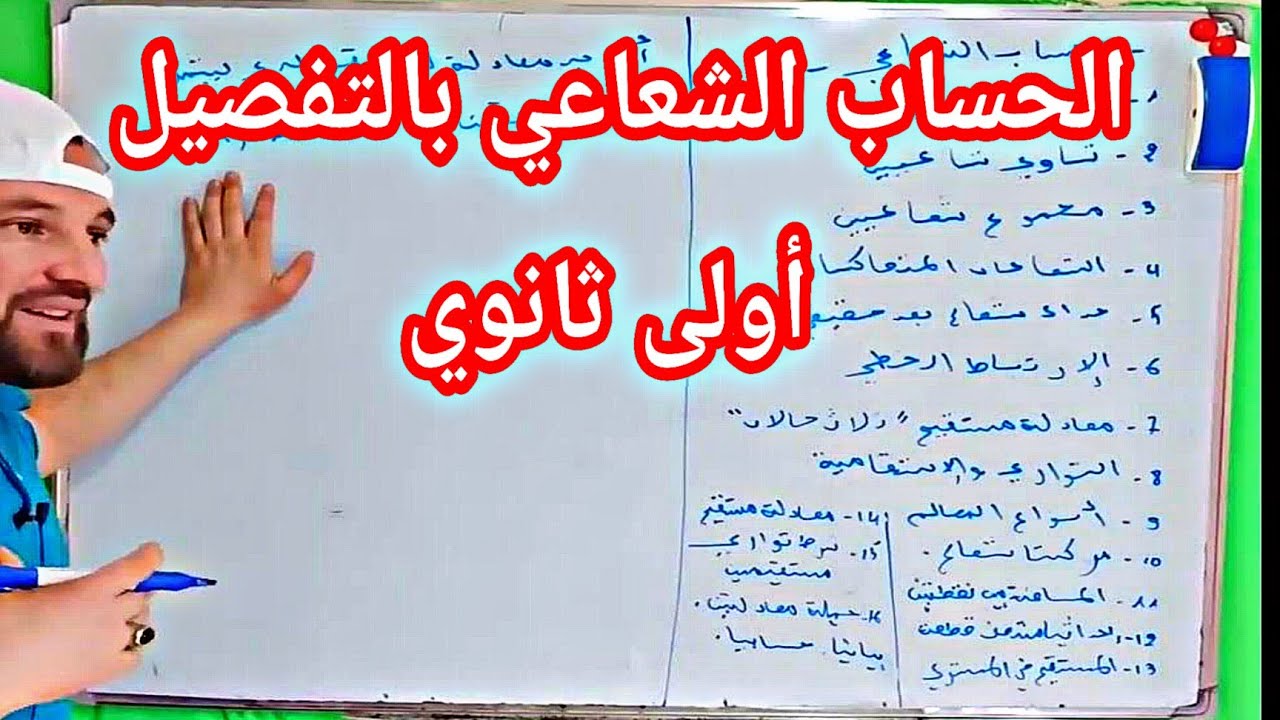 الحساب الشعاعي بالتفصيل
أولى ثانوي
1-
2- تساوي شعاعين
3- مجموع شعاعين
4- الشعاعان المتعاكسا
5- جداء شعاع بعدد حقيقي
6- الارتباط الخطي
7- معادلة مستقيم "ثلاث حالات"
8- التوازي والاستقامية
9- أنواع المعالم
10- مركبتا شعاع.
11- المسافة بين نقطتين
12- احداثيات منتصف قطعة
13- المستقيم في المستوي
14- معادلة مستقيم
15- شرط توازي
مستقيمين
16- جملة معادلتين.
بيانيا. حسابيا.